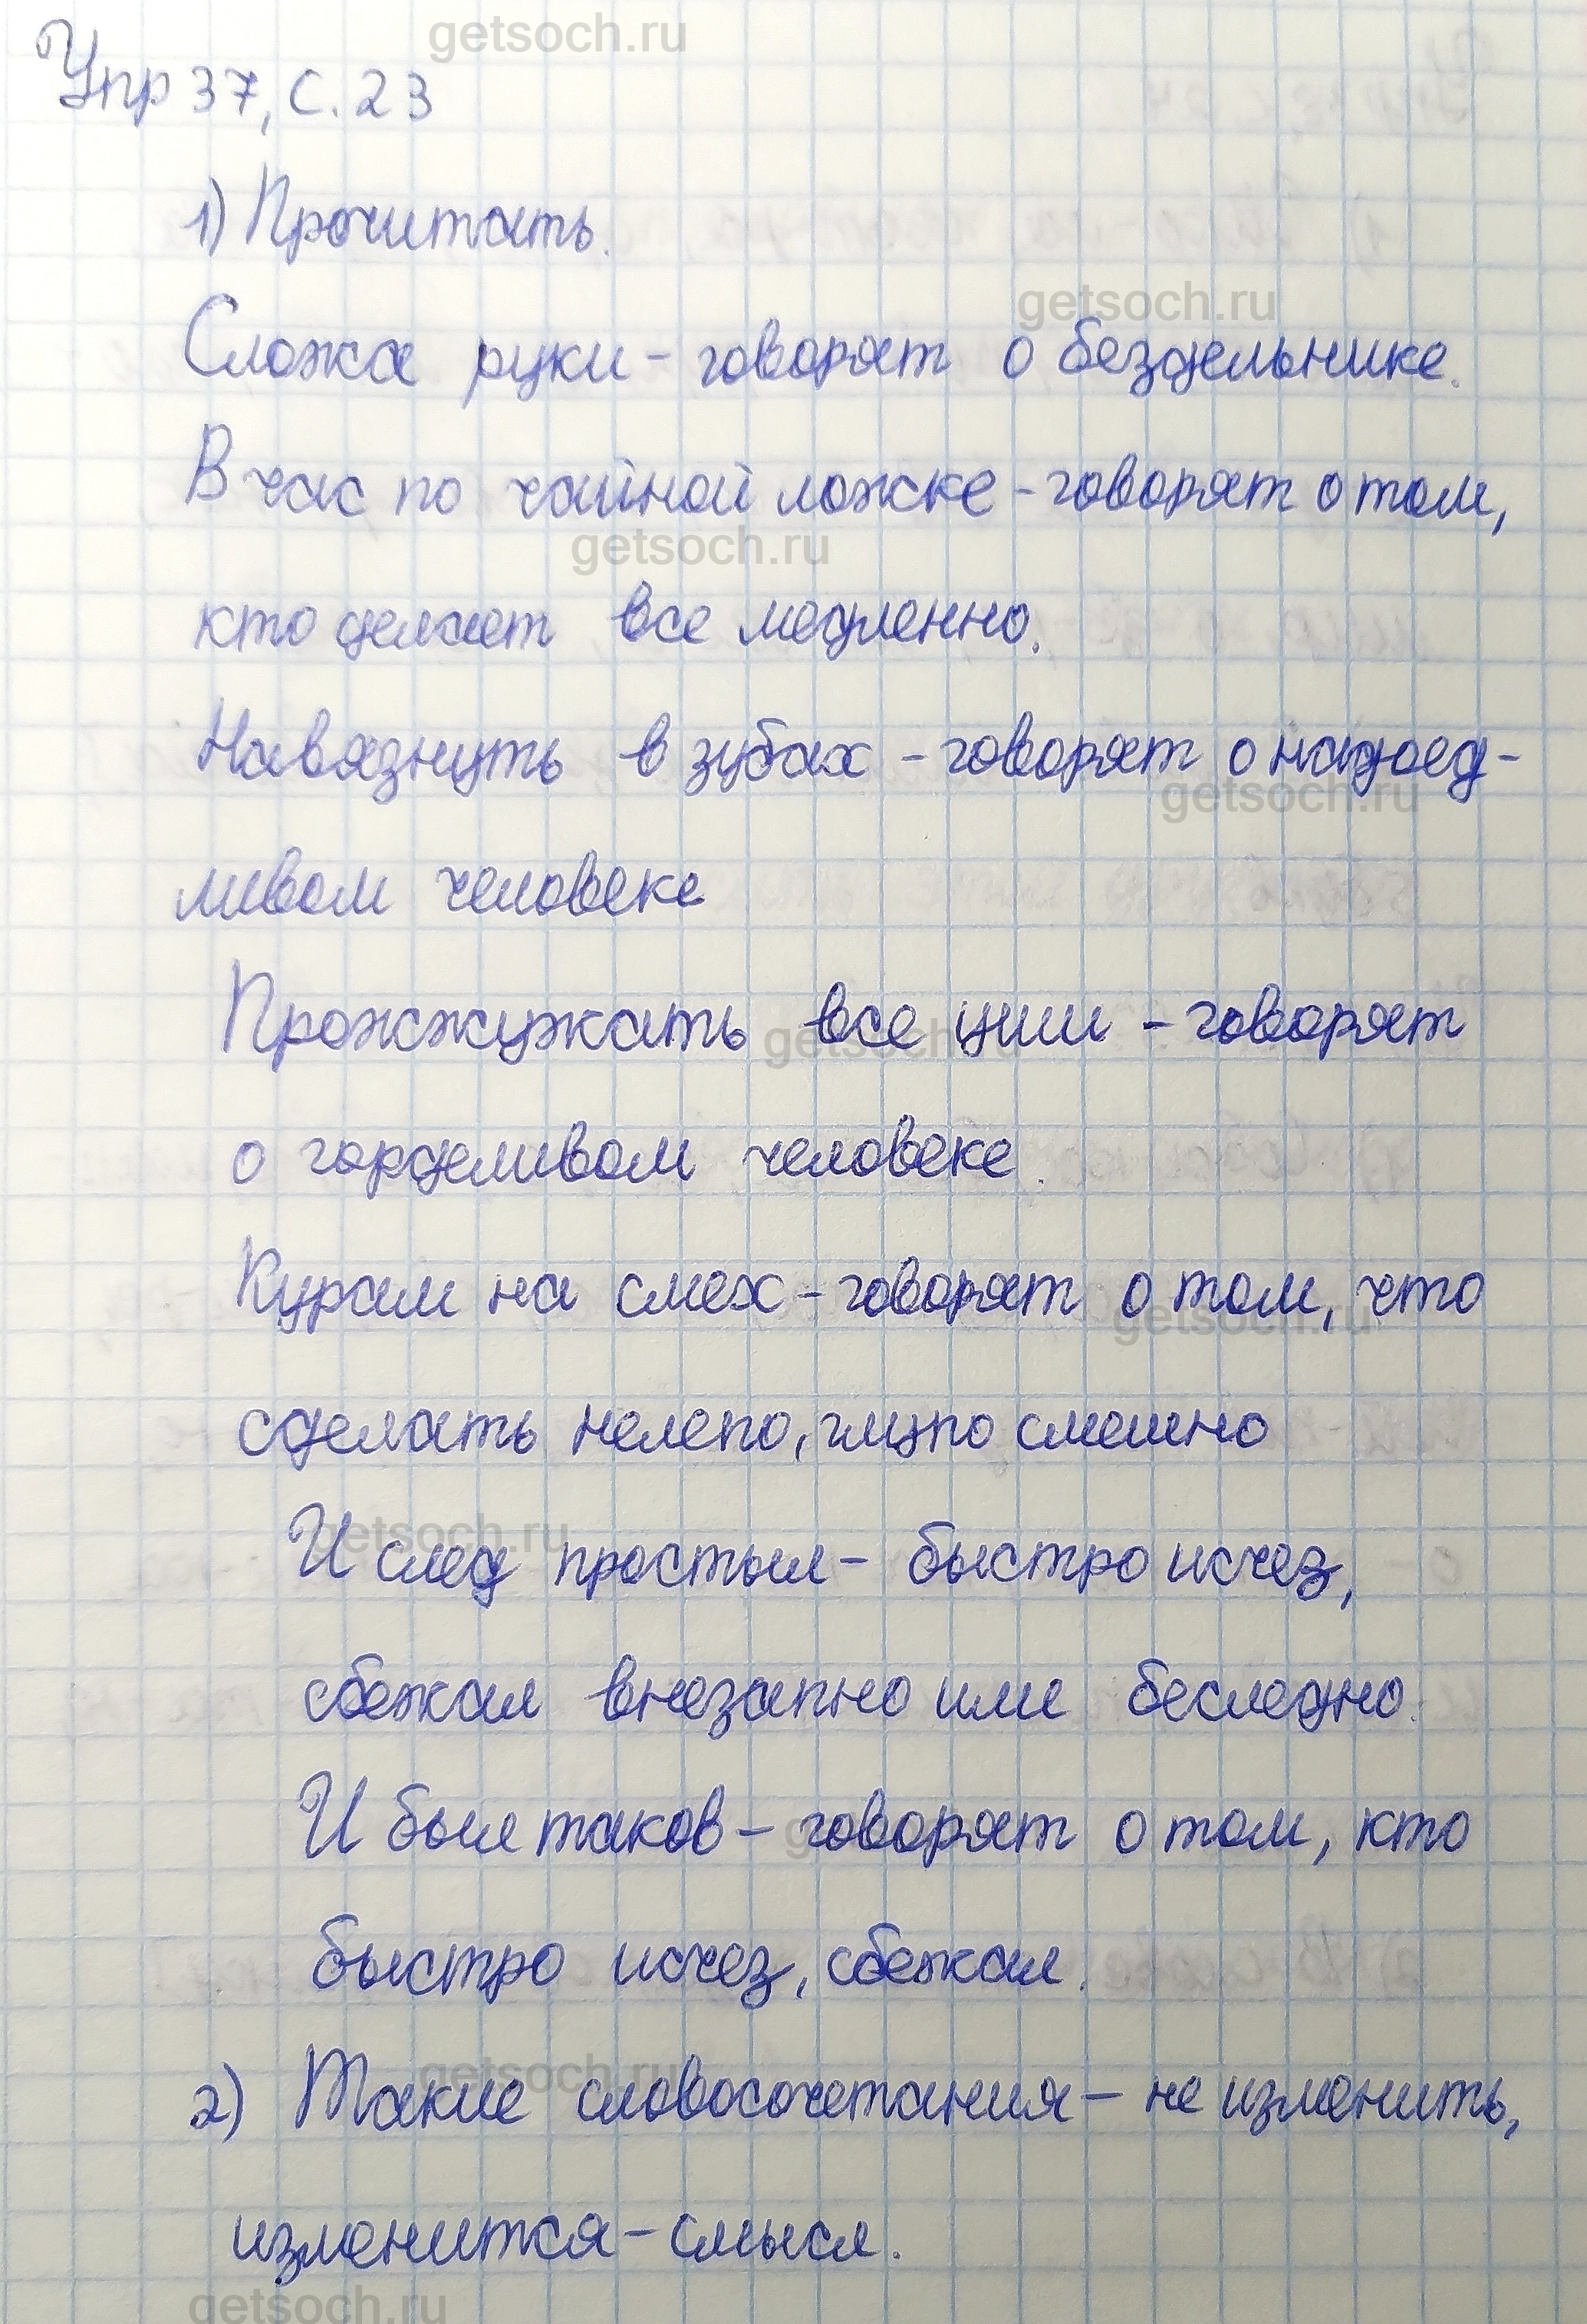 getsoch.ru
Упр 37, с. 23
1) Прочитать.
getsoch.ru
Сложа руки - говорят о бездельнике.
В час по чайной ложке - говорят о том,
getsoch.ru
кто делает все медленно.
Навязнуть в зубах - говорят о надоед-
getsoch.ru
ливом человеке
Прожжужать все уши - говорят
getsoch.ru
о горделивом человеке.
Курам на смех - говорят о том, что
getsoch.ru
сделать нелепо, глупо смешно
getsoch.ru
И след простыл - быстро исчез,
сбежал внезапно или беследно.
И был таков - говорят о том, кто
быстро исчез, сбежал.
getsoch.ru
2) Такие словосочетания - не изменить,
изменится - смысл.
getsoch.ru